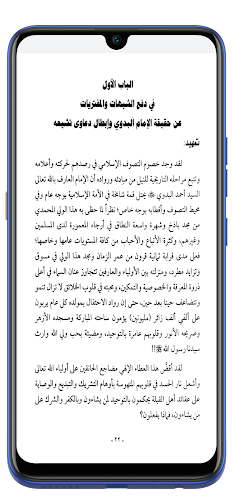 الباب الأول
في دفع الشبهات والمفتريات
عن حقيقة الإمام البدوي وإبطال دعاوى تشيعه
تمهيد:
لقد وجد خصوم التصوف الإسلامي في رصدهم لحركته وأعلامه
وتتبع مراحله التاريخية للنيل من مبادئه ورواده أن الإمام العارف بالله تعالى
السيد أحمد البدوي يحتل قمة شامخة في الأمة الإسلامية بوجه عام وفي
محيط التصوف وأقطابه بوجه خاص؛ نظراً لما حظي به هذا الولي المحمدي
من مجد باذخ وشهرة واسعة النطاق في أرجاء المعمورة لدى المسلمين
وغيرهم، وكثرة الأتباع والأحباب من كافة المستويات عامها وخاصها؛
فعلى مدى قرابة ثمانية قرون من عمر الزمان ومجد هذا الولي في سموق
وتزايد مطرد، ومنزلته بين الأولياء والعارفين تتجاوز عنان السماء في أعلى
ذروة المعرفة والخصوصية والتمكين، ومحبته في قلوب الخلائق لا تزال تنمو
وتتضاعف حيناً بعد حين، حتى إن رواد الاحتفال بمولده كل عام يربون
على ألفي ألف زائر (مليونين) يؤمون ساحته المباركة ومسجده الأزهر
وضريحه الأنور وقلوبهم عامرة بالتوحيد، ومضيئة بحب ولي الله وارث
سيدنا رسول الله ﷺ!!
لقد أقضَّ هذا العطاء الإلهي مضاجع الحانقين على أولياء الله تعالى
وأشعل نار الحسد في قلوبهم المهووسة بأوهام التشريك والتبديع والوصاية
على عقائد أهل القبلة يحكمون بالتوحيد لمن يشاءون وبالكفر والشرك على
من يشاءون، فإذا يفعلون؟
- ٢٢ -